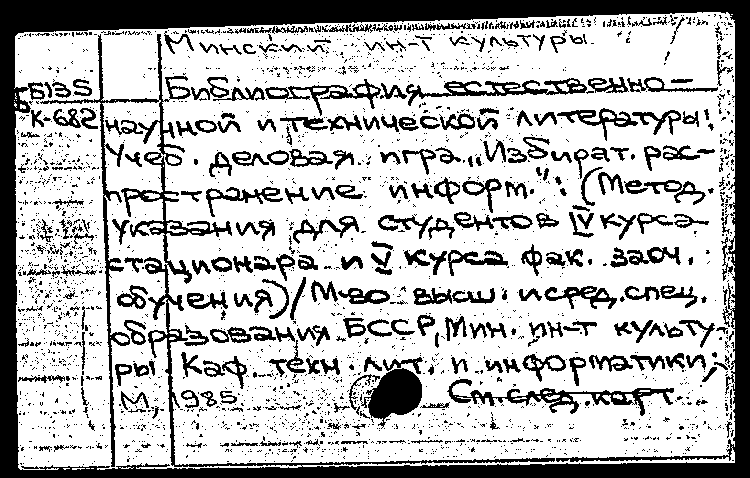 Минский ин-т культуры
Б135 Библиография естественно-
К-682 научной и технической литературы:
Учеб. деловая игра „Избират. рас-
пространение информ.": (Метод.
указания для студентов IV курса
стационара и V курса фак. заоч.
обучения) / М-во высш. и сред. спец.
образования БССР, Мин. ин-т культу-
ры. Каф. техн. лит. и информатики;
М, 1985 См. след. карт.